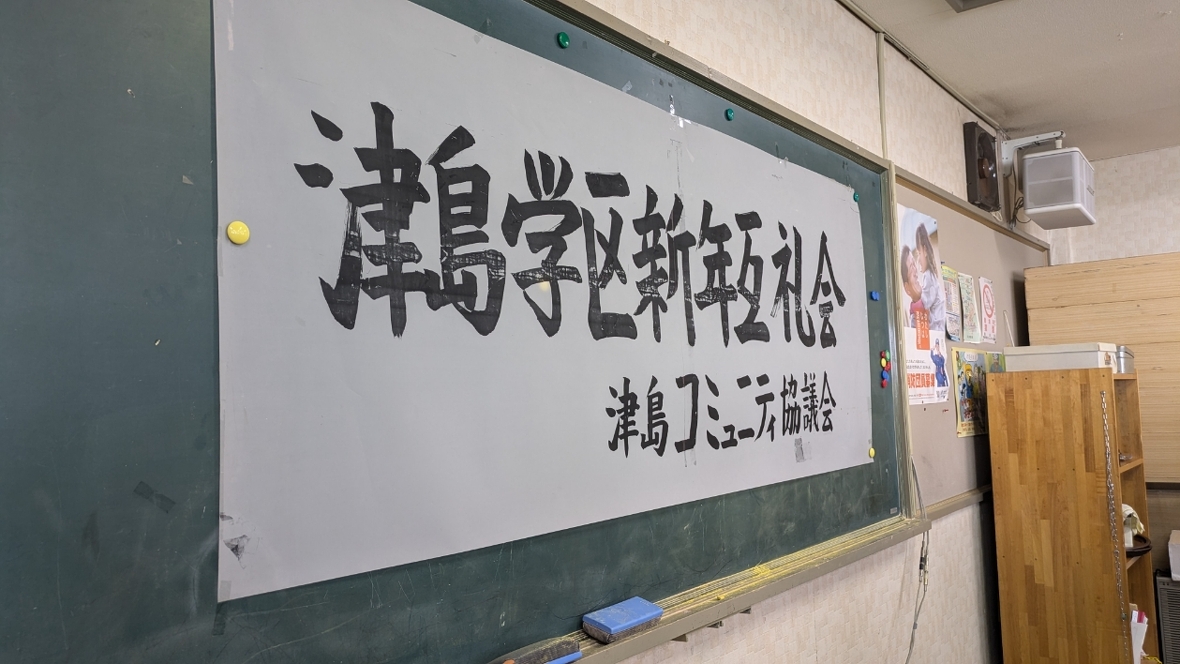 津島学区新年互礼会
津島コミュニティ協議会